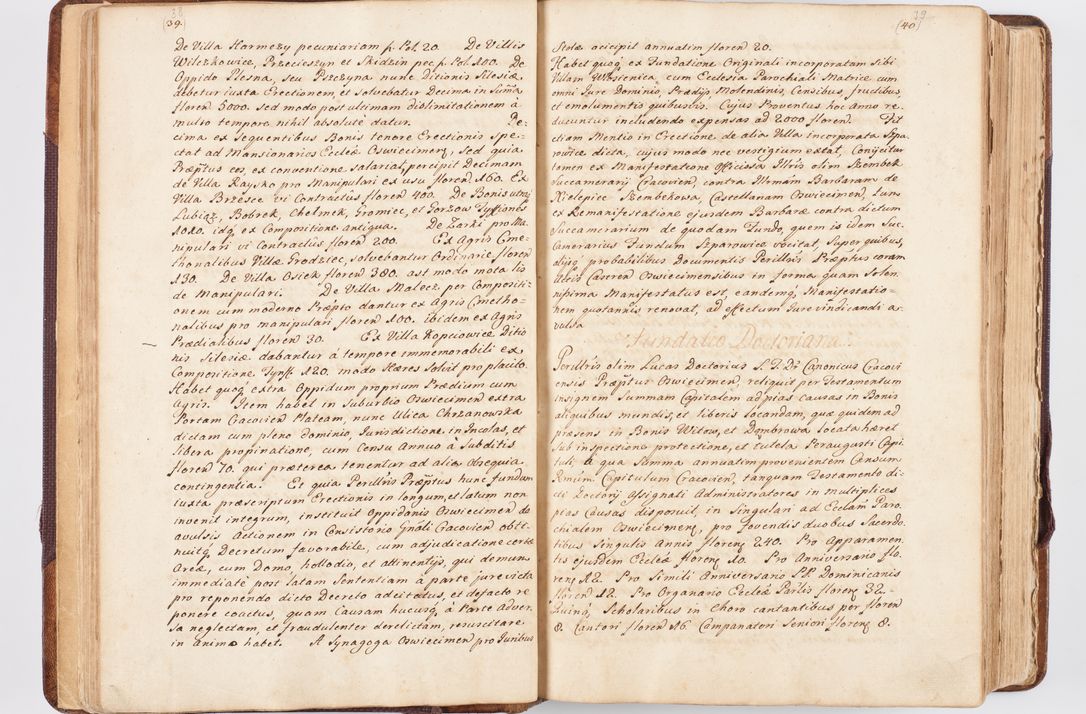 (39.
De Villa Harmezy pecuniariam p. Pol. 20. De Villis
Wilczkowice, Przecieszyn et Skidzin pec. p. Pol. 100. De
Oppido Plesna, seu Pszczyna nunc Ditionis Silesiæ
debetur iuxta Erectionem, et solvebatur Decima in Suma
floren 5000. sed modo post ultimam dislimitationem à
multo tempore nihil absolutè datur. De-
cima ex Sequentibus Bonis tenore Erectionis spe-
ctat ad Mansionarios Eccleæ Oswiecimen, sed quia
Præptus eos, ex conventione salariat, percipit Decimam
de Villa Raysko pro Manipulari ex usu floren 160. Ex
Villa Brzesce vi Contractûs floren 400. De Bonis utriq
Lubiąz, Bobrek, Chelmek, Gromiec, et Gorzow Tynffionis
1020. idq ex Compositione antiqua. De Zarki pro Ma-
nipulari vi Contractûs floren 200. Ex Agris Cme-
thonalibus Villæ Grodziec, solvebantur Ordinarie floren
130. De Villa Osiek floren 380. ast modo mota lis
de Manipulari. De Villa Malecz per Compositi-
onem cum moderno Præpto dantur ex Agris Cmetho-
nalibus pro manipulari floren 100. ibidem ex Agris
Prædialibus floren 30. Ex Villa Kopciowice Ditio
nis Silesiæ dabantur à tempore immemorabili ex
Compositione Tynff 120. modo Hæres Solvit pro placito.
Habet quoq extra Oppidum proprium Prædium cum
Agris. Item habet in Suburbio Oswiecimen extra
Portam Cracovien Plateam, nunc Ulica Chrzanowska
dictam cum pleno dominio, Iurisdictione in Incolas, et
libera propinatione, cum Censu Annuo à Subditis
floren 70. qui præterea tenentur ad alia obsequia
contingentia. Et quia Perillris Præptus hunc fundum
iuxta præscriptum Erectionis in longum, et latum non
invenit integrum, instituit Oppidanis Oswiecimen de
avulsis Actionem in Consistorio Gnãli Cracovien obti-
nuitq Decretum favorabile, cum adjudicatione certæ
Areæ, cum Domo, hollodio, et attinentijs, qui demum
immediatè post latam Sententiam à parte jurevicta
pro reponendo dicto Decreto adcitatus, et defacto re
ponere coactus, quam Causam hucusq à Parte Adver-
sa neglectam, et fraudulenter derelictam, resuscitare
in animo habet. A Synagoga Oswiecimen pro Iuribus
39
(40.
Stolæ accipit annuatim floren 20.
Habet quoq ex Fundatione Originali incorporatam sibi
Villam Włosienica, cum Ecclesia Parochiali Matrice cum
omni Jure Dominio, Prædijs Molendinis, Censibus, fructibus,
et emolumentis quibusvis. Cujus Proventus hoc anno re-
ducuntur includendo expensas ad 2000 floren. Fit
etiam Mentio in Erectione de alia Villa incorporata Szpa
rowice dicta, cujus modo nec vestigium extat, Conijcitur
tamen ex Manifestatione Officiosa Illris olim Szembek
Succamerarij Cracovien, contra
Kielepice Szembekowa, Castellanam Oswiecimen, tum
ex Remanifestatione ejusdem Barbaræ contra dictum
Succamerarium de quodam Fundo, quem is idem Suc-
Camerarius Fundum Szparowice vocitat, super quibus,
alijsq probabilibus Documentis Perillris Præptus coram
Actis Castren Oswiecimensibus in forma quam Solen-
nissima Manifestatus est, eandemq Manifestatio-
nem quotannis renovat, ad effectum Iure vindicandi a-
vulsa.
Fundatio Doctoriana.
Perillris olim Lucas Doctorius S. T. Dr Canonicus Cracovi
ensis Præptus Oswiecimen, reliquit per Testamentum
insignem Summam Capitalem ad pias causas in Bonis
aliquibus mundis, et liberis locandam, quæ quidem ad
præsens in Bonis Witow, et Dombrowa locata hæret
sub inspectione protectione, et tutela Peraugusti Capi
tuli. A qua Summa annuatim provenientem Censum
Rmum Capitulum Cracovien, tanquam Testamento di-
cti Doctorij Assignati Administratores in multiplices
pias Causas disposuit, in Singulari ad Ecclam Paro-
chialem Oswiecimen, pro fovendis duobus Sacerdo
tibus singulis Annis floren 240. Pro Apparamen
tis ejusdem Eccleæ floren 10. Pro Anniversario flo
ren 12. Pro Simili Anniversario P.P. Dominicanis
floren 12. Pro Organario Eccleæ Parlis floren 32.
Quinq Scholaribus in Choro cantantibus per floren
8. Cantori floren 16. Companatori Seniori floren 8.